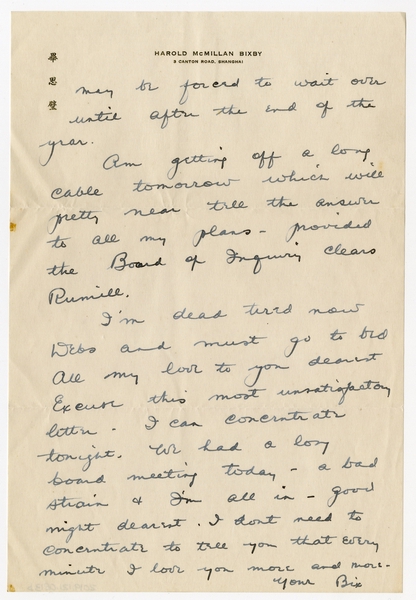 HAROLD McMILLAN BIXBY
3 CANTON ROAD, SHANGHAI
畢
思
璧
may be forced to wait over
until after the end of the
year.
Am getting off a long
cable tomorrow which will
pretty near tell the answer
to all my plans - provided
the Board of Inquiry clears
Rumill.
I'm dead tired now
Debs and must go to bed
All my love to you dearest
Excuse this most unsatisfactory
letter - I can concentrate
tonight. We had a long
board meeting today - a bad
strain & I'm all in - good
night dearest. I dont need to
concentrate to tell you that every
minute I love you more and more-
Your Bix